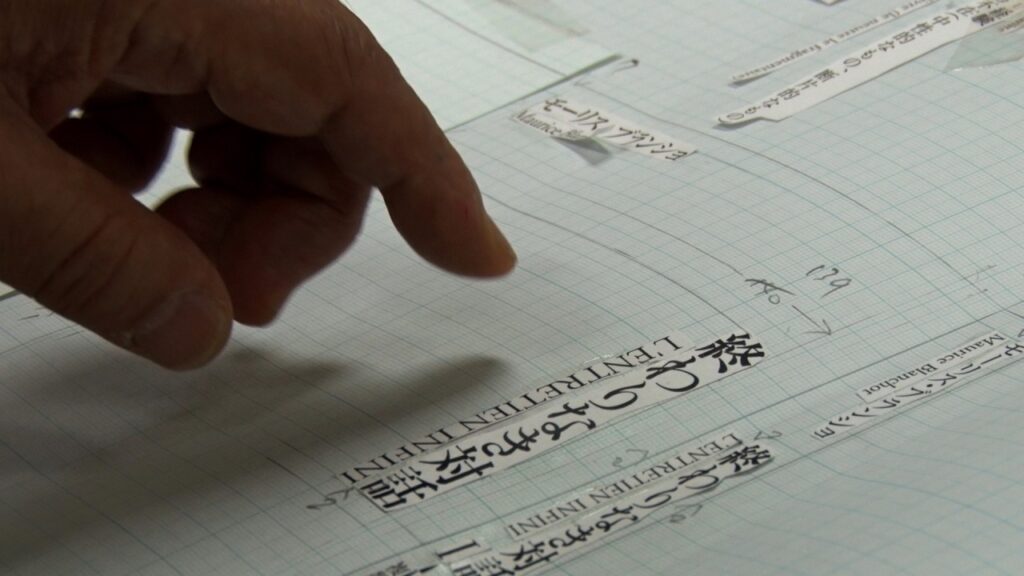 モーリス・ブランショ
Maurice
中性的なもの、断片的なもの
終わりなき対話
L'ENTRETIEN INFINI
139
140
モーリス・ブランショ
Maurice Blanchot
終わりなき対話
L'ENTRETIEN INFINI
I